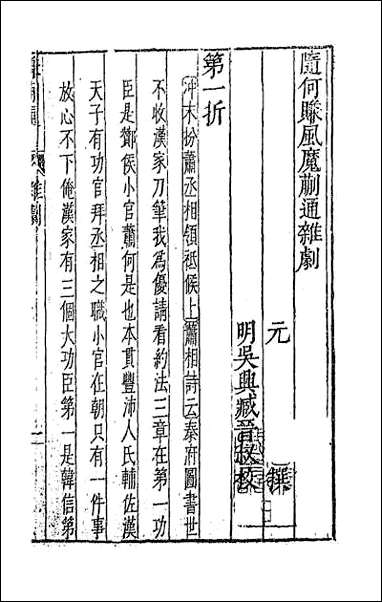 隨何賺風魔蒯通雜劇
元　撰
明吳興臧晉叔校
第一折
冲末扮蕭丞相領祗候上蕭相詩云秦府圖書世
不收漢家刀筆我爲優請看約法三章在第一功
臣是酇侯小官蕭何是也本貫豐沛人氏輔佐漢
天子有功官拜丞相之職小官在朝只有一件事
放心不下俺漢家有三個大功臣第一是韓信第
雜劇
一